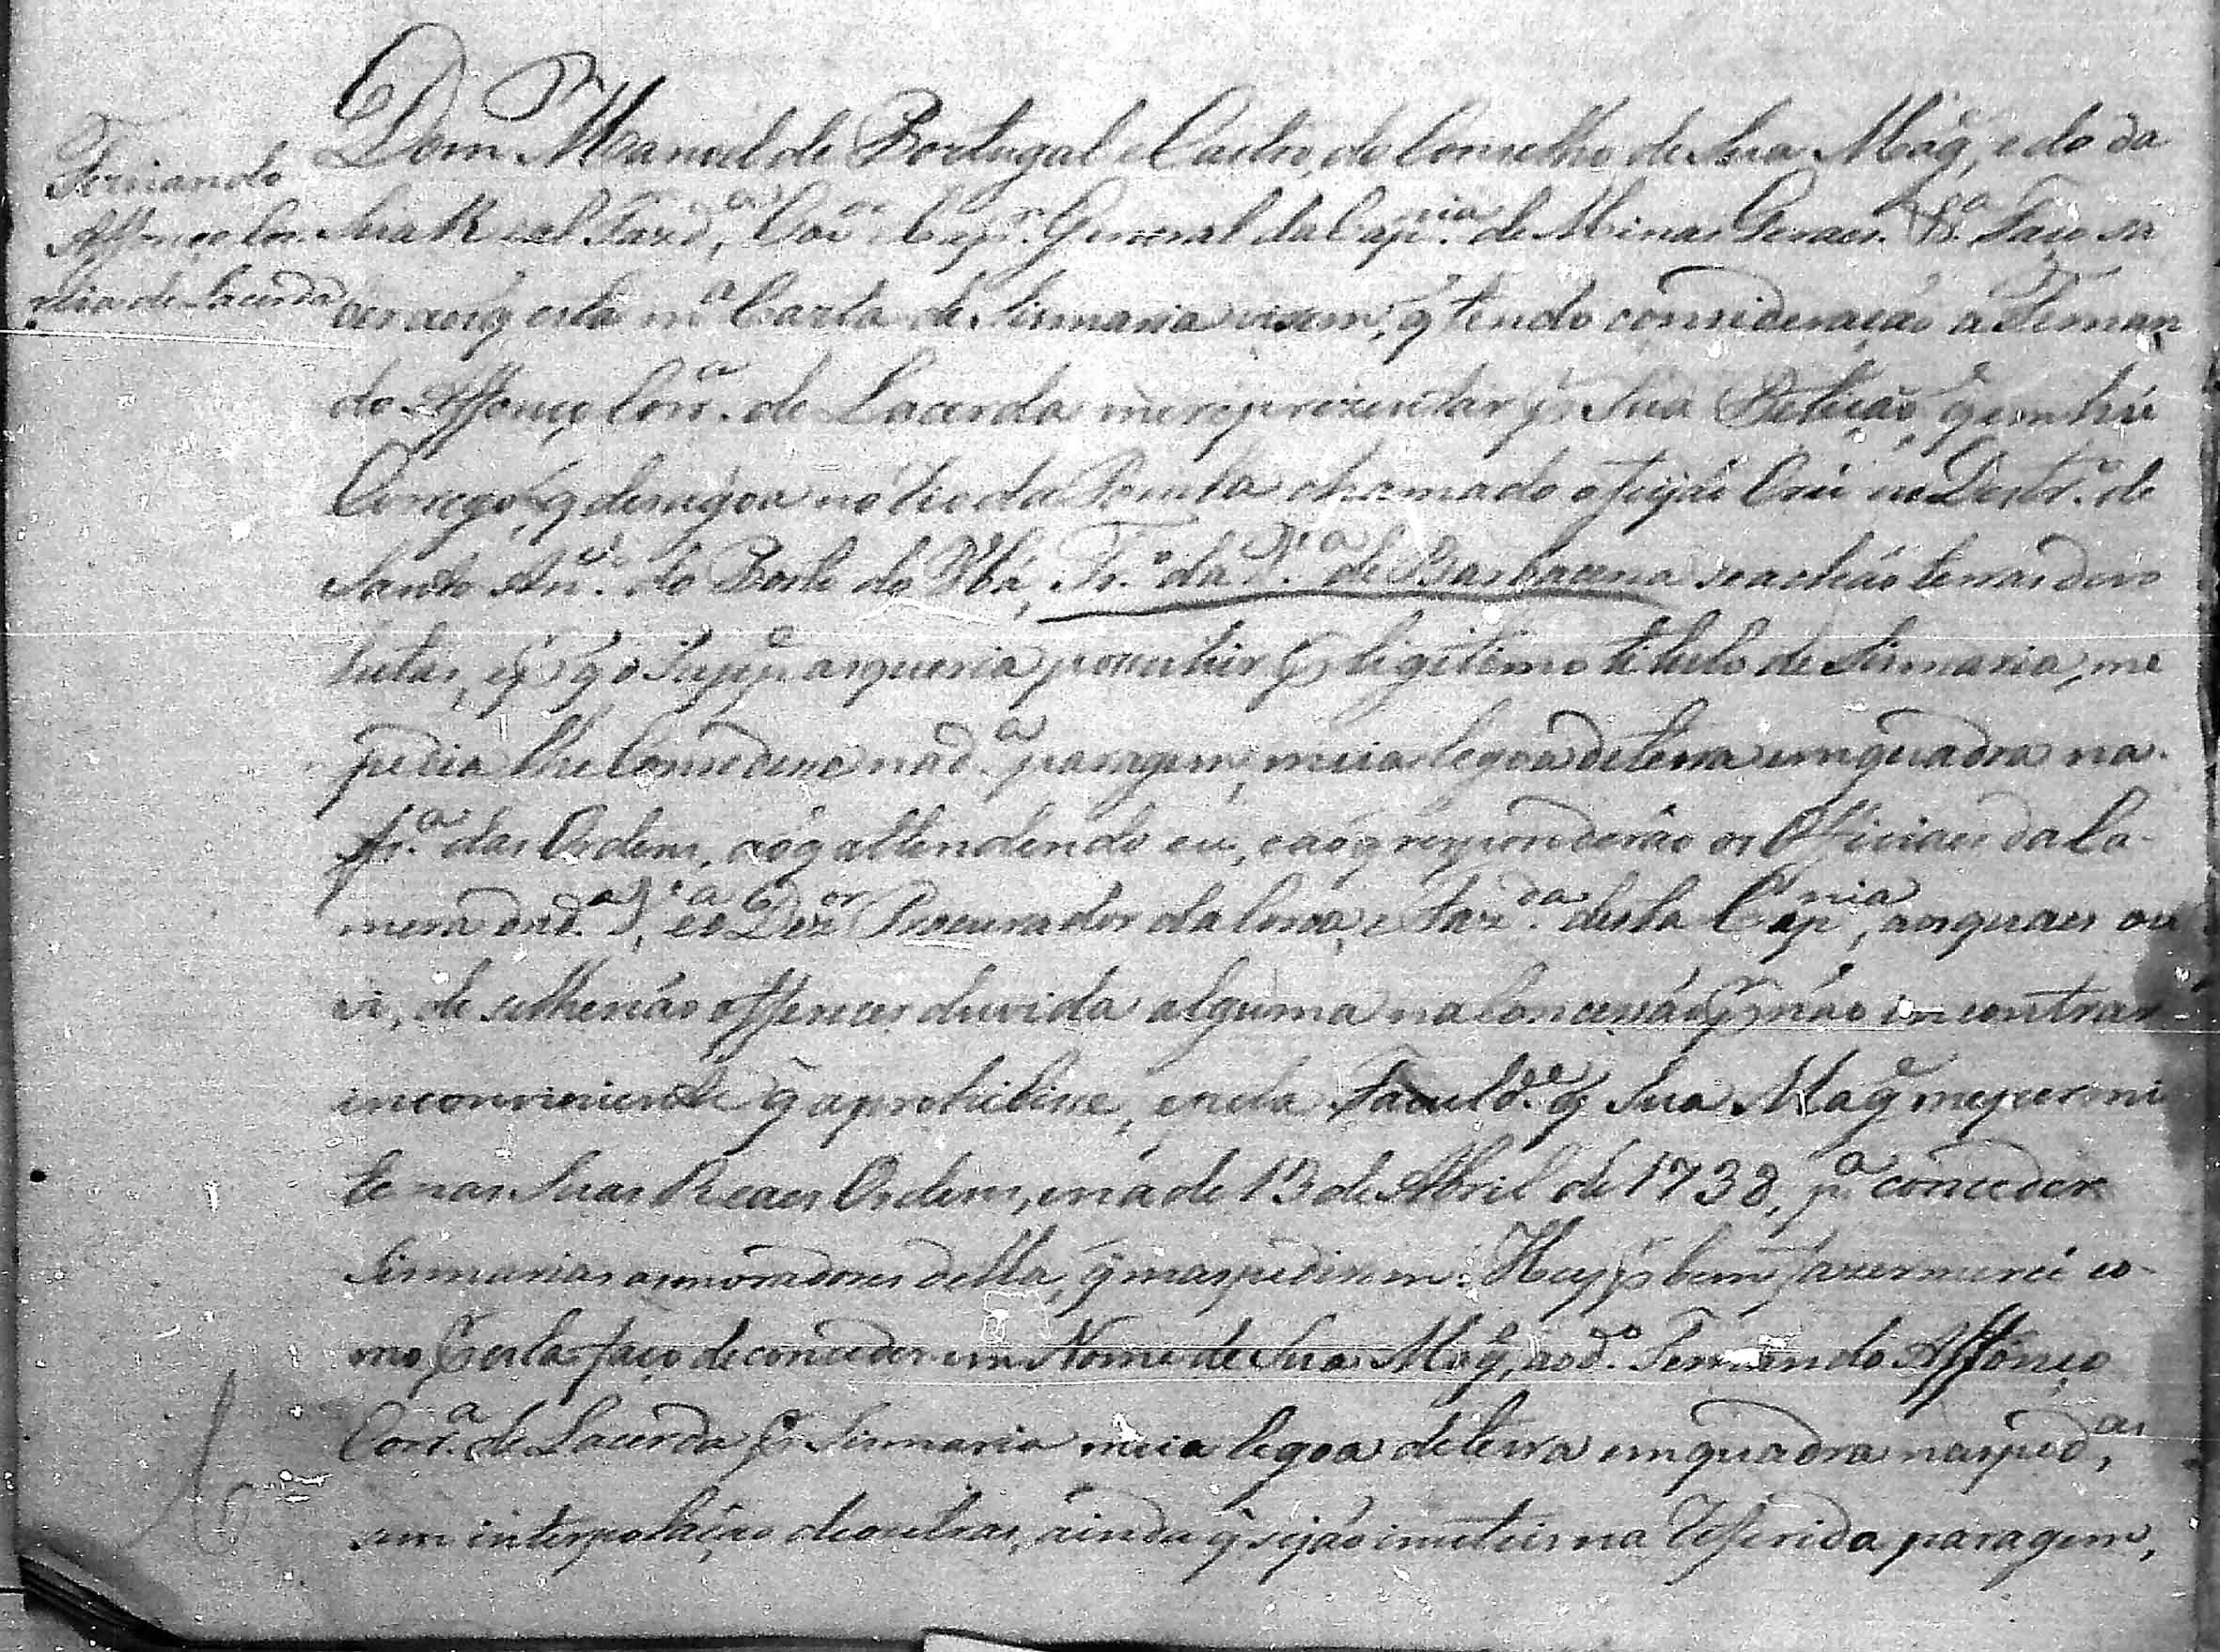 Fernando
Affonço Cor-
rêia de Lacerda
Dom Manoel de Portugal e Castro, do Conselho de Sua Mag.e, e do da
Sua Real Fazd.a, Gov.or e Cap.m General da Cap.nia de Minas Geraes. &.a Faço sa
ber aos q̃ esta m.a Carta de Sismaria virem, q̃ tendo consideração a Fernan
do Affonço Corr.a de Lacerda me reprezentar p.r Sua Petição, q̃ em hũ
Corrego, q̃ desagoa no Rio da Pomba chamado o feijão Crú no Destr.o de
Santo An.to do Porto do Ubá, Tr.o da V.a de Barbacena se achão terras devo
lutas, e p.r q̃ o Supp.e as queria possuhir p.r legitimo titulo de Sismaria, me
pedia lhe Concedesse na d.a paragem, meia legoa de terra em quadra na
fr.a das Ordens, ao q̃ attendendo eu, e ao q̃ responderão os Officiaes da Ca-
mera da d.a V.a, e o Dez.or Procurador da Coroa, e Faz.da desta Cap.nia, aos quaes ou
vi, de se lhe não offerecer duvida alguma na Concessão, p.r não encontrar
inconveniente q̃ a prohibisse, e pela Faculd.e q̃ Sua Mag.e me permi
te nas Suas Reaes Ordens, e na de 13 de Abril de 1738, p.a conceder
Sismarias aos moradores della, q̃ mas pedirem: Hey p.r bem fazer mercê co-
mo p.r esta faço de conceder em Nome de Sua Mag.e, ao d.o Fernando Affonço
Corr.a de Lacerda p.r Sismaria meia legoa de terra em quadra nas ped.as,
sem interpolação de outras, ainda q̃ sejão inuteis na referida paragem,